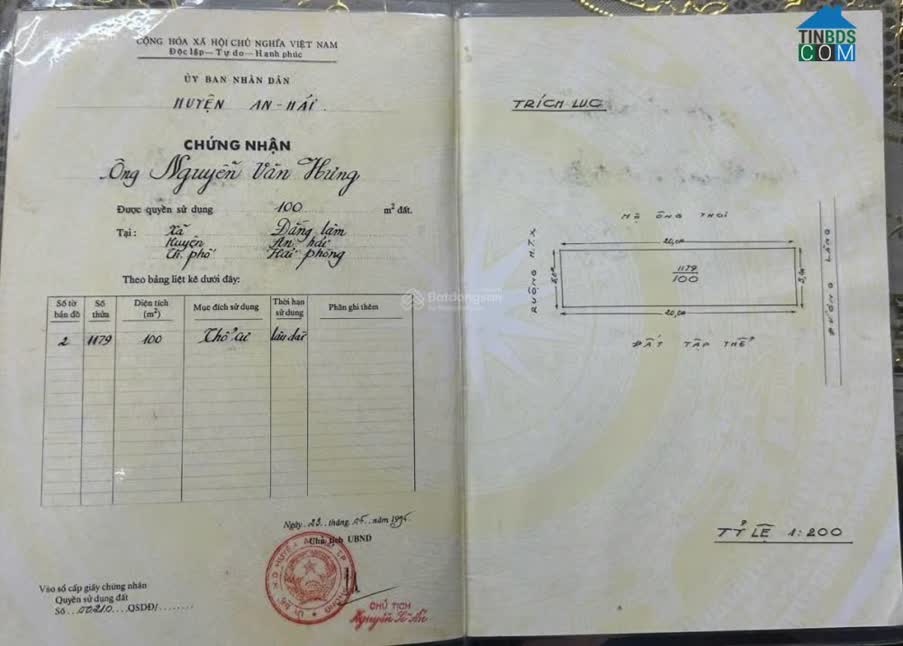 CỘNG HÒA XÃ HỘI CHỦ NGHĨA VIỆT NAM
Độc lập - Tự do - Hạnh phúc
ỦY BAN NHÂN DÂN
HUYỆN AN - HẢI
CHỨNG NHẬN
Ông Nguyễn Văn Hưng
Được quyền sử dụng 100 m² đất.
Tại : Xã Đằng lâm
Huyện An hải
Th. phố Hải phòng
Theo bảng liệt kê dưới đây:
Số tờ bản đồ Số thửa Diện tích (m²) Mục đích sử dụng Thời hạn sử dụng Phần ghi thêm
2 1179 100 Thổ cư lâu dài
Ngày 23 tháng 05 năm
Chủ tịch UBND
CHỦ TỊCH
Nguyễn
Vào sổ cấp giấy chứng nhận
Quyền sử dụng đất
Số 00210 QSDĐ/
TINBDS
COM
TRÍCH LỤC
MỘ ÔNG THOI
20,0m
RUỘNG H.T.X
5,0m
1179
100
5,0m
ĐƯỜNG LÀNG
20,0m
ĐẤT TẬP THỂ
TỶ LỆ 1:200
Batdongsan